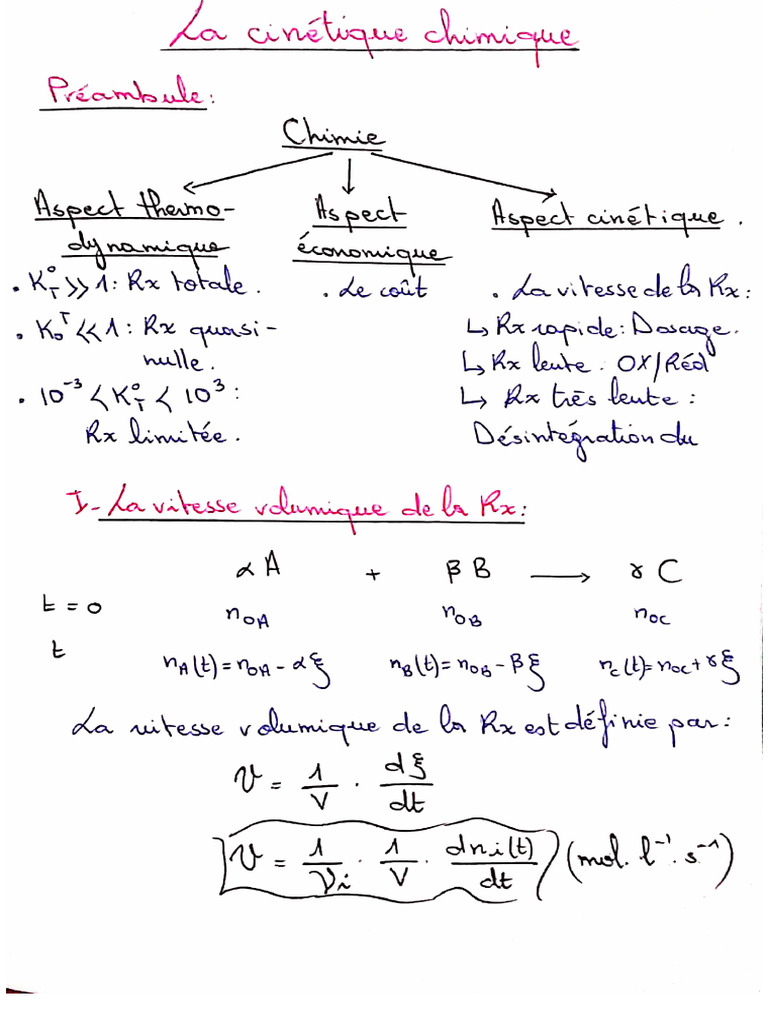 La cinétique chimique
Préambule:
Chimie
Aspect thermo-
dynamique
. K°T >> 1: Rx totale.
. K°T << 1: Rx quasi-
nulle.
. 10⁻³ < K°T < 10³:
Rx limitée.
Aspect
économique
. Le coût
Aspect cinétique.
. La vitesse de la Rx:
↳ Rx rapide: Dosage.
↳ Rx lente: OX/Réd
↳ Rx très lente:
Désintégration du
I- La vitesse volumique de la Rx:
α A + β B → γ C
t = 0 n₀A n₀B n₀C
t nA(t) = n₀A - αξ nB(t) = n₀B - βξ nC(t) = n₀C + γξ
La vitesse volumique de la Rx est définie par:
v = 1/V . dξ/dt
v = 1/νi . 1/V . dni(t)/dt (mol. l⁻¹. s⁻¹)